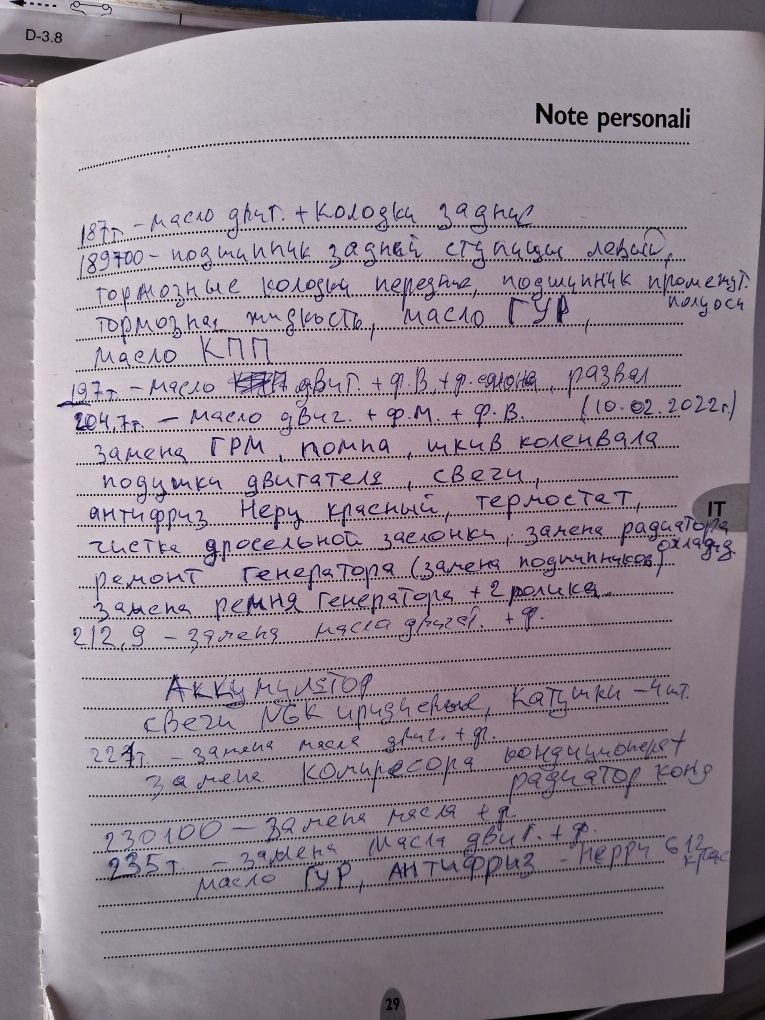 D-3.8
Note personali
187т. - масло двиг. + колодки задние
189700 - подшипник задней ступицы левый,
тормозные колодки передние, подшипник промежут.
полуоси
тормозная жидкость, масло ГУР,
масло КПП
197т - масло двиг. + ф.В. + ф.салона, развал
204,7т. - масло двиг. + ф.М. + ф.В. (10.02.2022г.)
замена ГРМ, помпа, шкив коленвала
подушки двигателя, свечи,
антифриз Hepu красный, термостат,
IT
чистка дросельной заслонки, замена радиатора
охлажд
ремонт генератора (замена подшипников)
замена ремня генератора + 2 ролика.
212,9 - замена масла двигат. + ф.
Аккумулятор
свечи NGK иридиевые, катушки - 4шт.
замена масла двиг. + ф.
замена компресора кондиционера +
радиатор конд
230100 - замена масла + ф.
235т - замена масла двиг. + ф.
масло ГУР, АНТИФРИЗ - G12
29